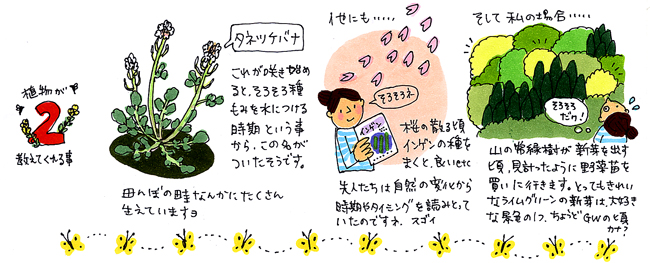 植物が
2
教えてくれる事
タネツケバナ
これが咲き始め
ると、そろそろ種
もみを水につける
時期という事
から、この名が
ついたそうです。
田んぼの畦なんかにたくさん
生えていますョ
他にも・・・・・
そろそろネ
インゲン
桜の散る頃
インゲンの種を
まくと、良いetc
先人たちは自然の変化から
時期やタイミングを読みとって
いたのですネ. スゴイ
そして私の場合・・・・・
そろそろ
だっ!
山の常緑樹が新芽を出す
頃、見計ったように野菜苗を
買いに行きます。とってもきれい
なライムグリーンの新芽は、大好き
な景色の1つ。ちょうどGWの頃
かナ?